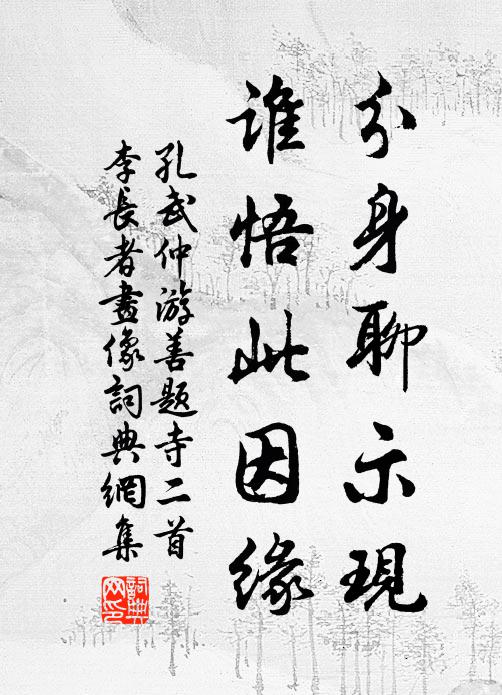 分身聊示現
誰悟此因緣
孔武仲游善題寺二首
李長者畫像詞典網集
詞典網印